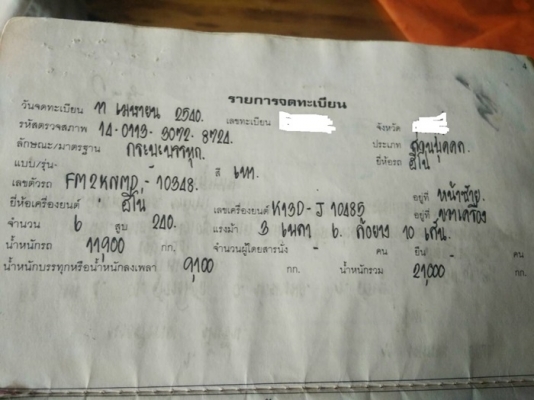 รายการจดทะเบียน
วันจดทะเบียน 11 เมษายน 2540. เลขทะเบียน จังหวัด
รหัสตรวจสภาพ 14-0113-3072-8724. ประเภท ส่วนบุคคล.
ลักษณะ/มาตรฐาน กระบะบรรทุก. ยี่ห้อรถ ฮีโน่
แบบ/รุ่น- สี เทา.
เลขตัวรถ FM2KNMD-10348. อยู่ที่ หน้าซ้าย.
ยี่ห้อเครื่องยนต์ ฮีโน่ เลขเครื่องยนต์ K13D-J 10485 อยู่ที่
จำนวน 6 สูบ 240. แรงม้า 3 เพลา 6. ล้อยาง 10 เส้น.
น้ำหนักรถ 11,900 กก. จำนวนผู้โดยสารนั่ง - คน ยืน - คน
น้ำหนักบรรทุกหรือน้ำหนักลงเพลา 9,100 กก. น้ำหนักรวม 21,000 กก.